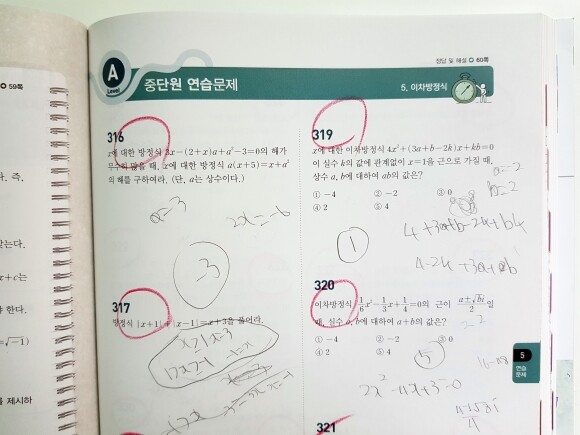 59쪽
정답 및 해설 60쪽
A
Level
중단원 연습문제
5. 이차방정식
316
x에 대한 방정식 3x-(2+x)a+a²-3=0의 해가
무수히 많을 때, x에 대한 방정식 a(x+5)=x+a²
의 해를 구하여라. (단, a는 상수이다.)
a=3
2x=-6
-3
317
방정식 |x+1|+|x-1|=x+3을 풀어라.
319
x에 대한 이차방정식 4x²+(3a+b-2k)x+kb=0
이 실수 k의 값에 관계없이 x=1을 근으로 가질 때,
상수 a, b에 대하여 ab의 값은?
① -4 ② -2 ③ 0
④ 2 ⑤ 4
a=-2
b=2
1
320
이차방정식 1/6x²-1/3x+1/4=0의 근이 (a±√bi)/2일
때, 실수 a, b에 대하여 a+b의 값은?
① -4 ② -2 ③ 0
④ 2 ⑤ 4
2x²-4x+3=0
5
연습
문제
321
즉,
는다.
x+c는
한다.
√-1)
제시하